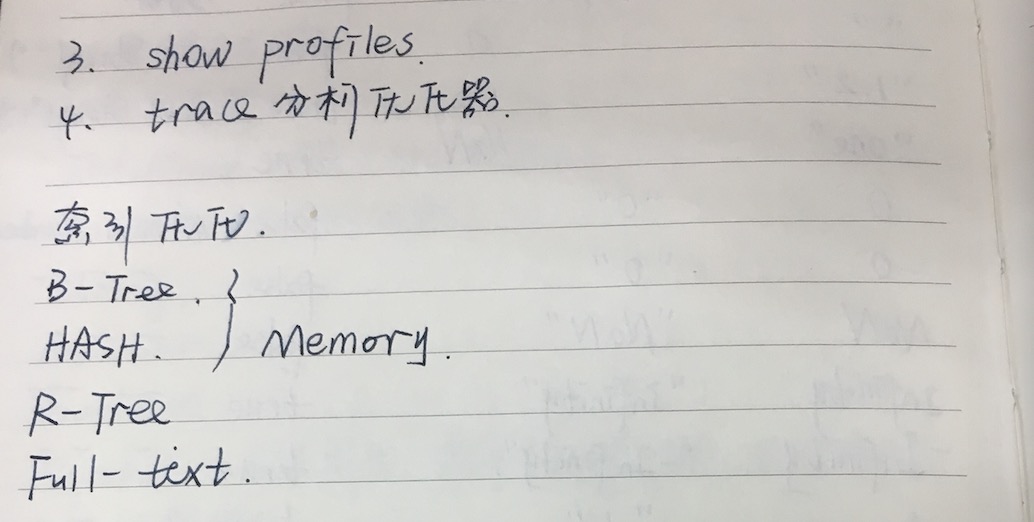 3. show profiles.
4. trace 分析优化器.
索引优化.
B-Tree.
HASH. } Memory.
R-Tree
Full-text.